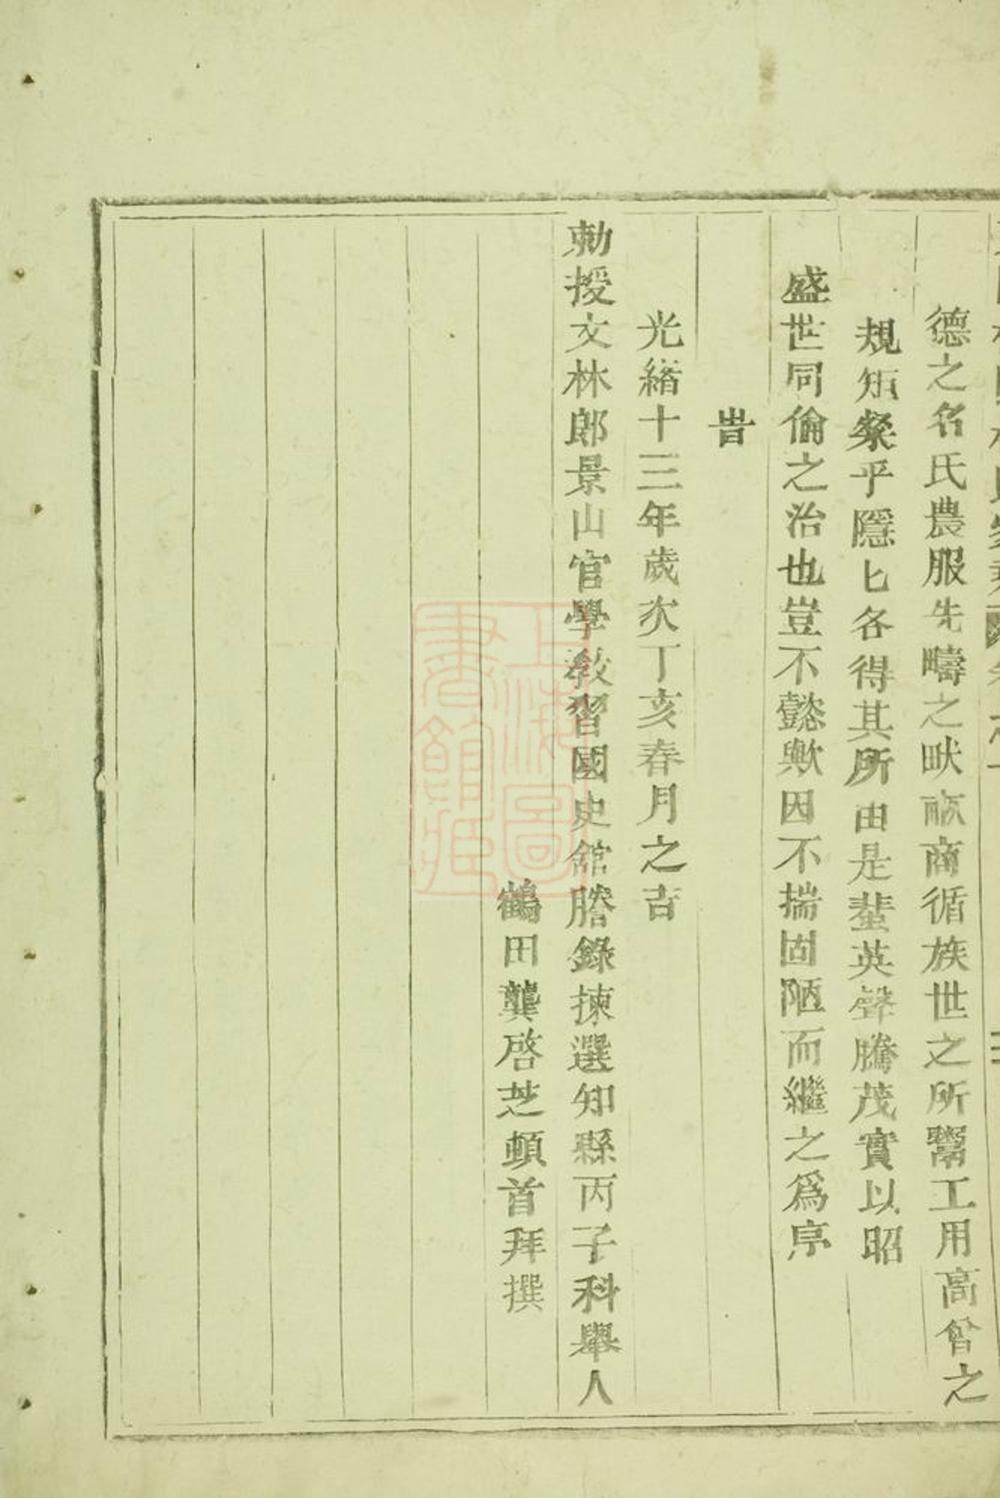 德之名氏農服先疇之畎畝商循族世之所鬻工用高曾之
規矩粲乎隱匕各得其所由是蜚英聲騰茂實以昭
盛世同倫之治也豈不懿歟因不揣固陋而繼之爲序
旹
光緒十三年歲次丁亥春月之吉
勅授文林郎景山官學敎習國史舘謄錄揀選知縣丙子科舉人
鶴田龔啓芝頓首拜撰
上海圖
書館藏